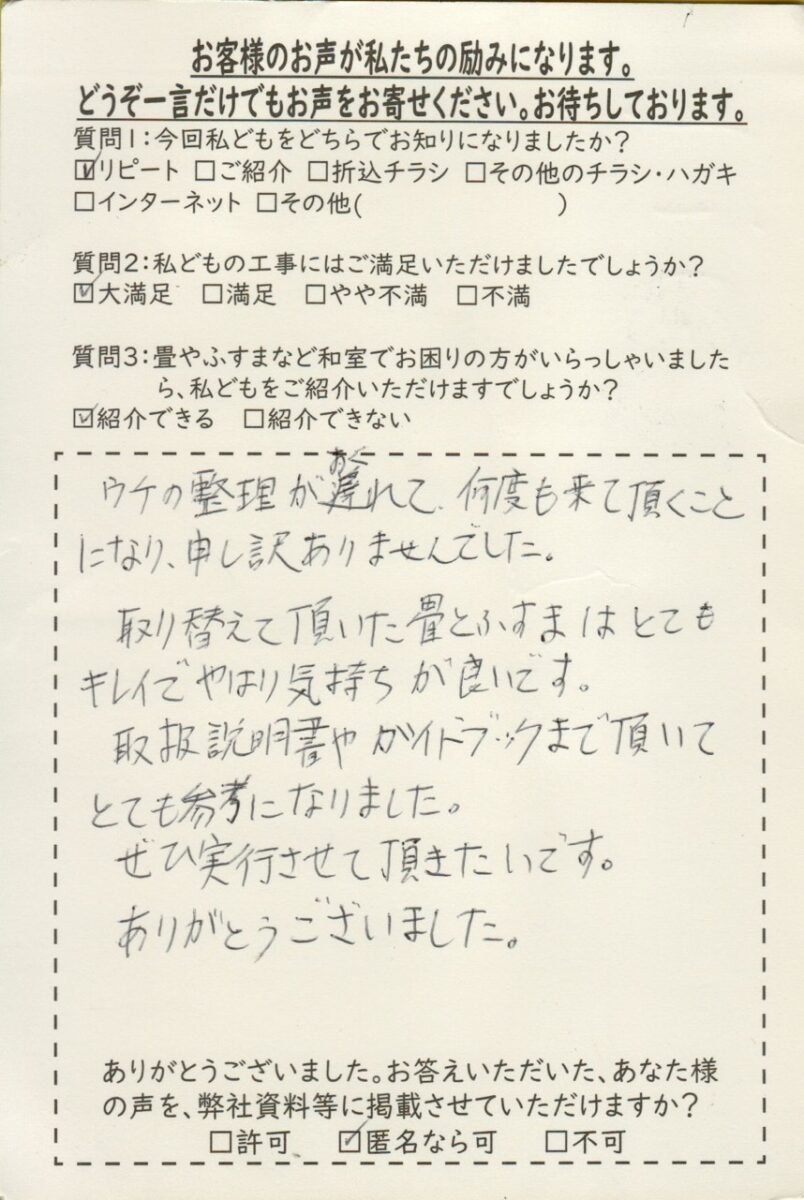 お客様のお声が私たちの励みになります。
どうぞ一言だけでもお声をお寄せください。お待ちしております。
質問1:今回私どもをどちらでお知りになりましたか?
☑リピート □ご紹介 □折込チラシ □その他のチラシ・ハガキ
□インターネット □その他( )
質問2:私どもの工事にはご満足いただけましたでしょうか?
☑大満足 □満足 □やや不満 □不満
質問3:畳やふすまなど和室でお困りの方がいらっしゃいました
ら、私どもをご紹介いただけますでしょうか?
☑紹介できる □紹介できない
おく
ウチの整理が遅れて、何度も来て頂くこと
になり、申し訳ありませんでした。
取り替えて頂いた畳とふすまはとても
キレイでやはり気持ちが良いです。
取扱説明書やガイドブックまで頂いて
とても参考になりました。
ぜひ実行させて頂きたいです。
ありがとうございました。
ありがとうございました。お答えいただいた、あなた様
の声を、弊社資料等に掲載させていただけますか?
□許可 ☑匿名なら可 □不可